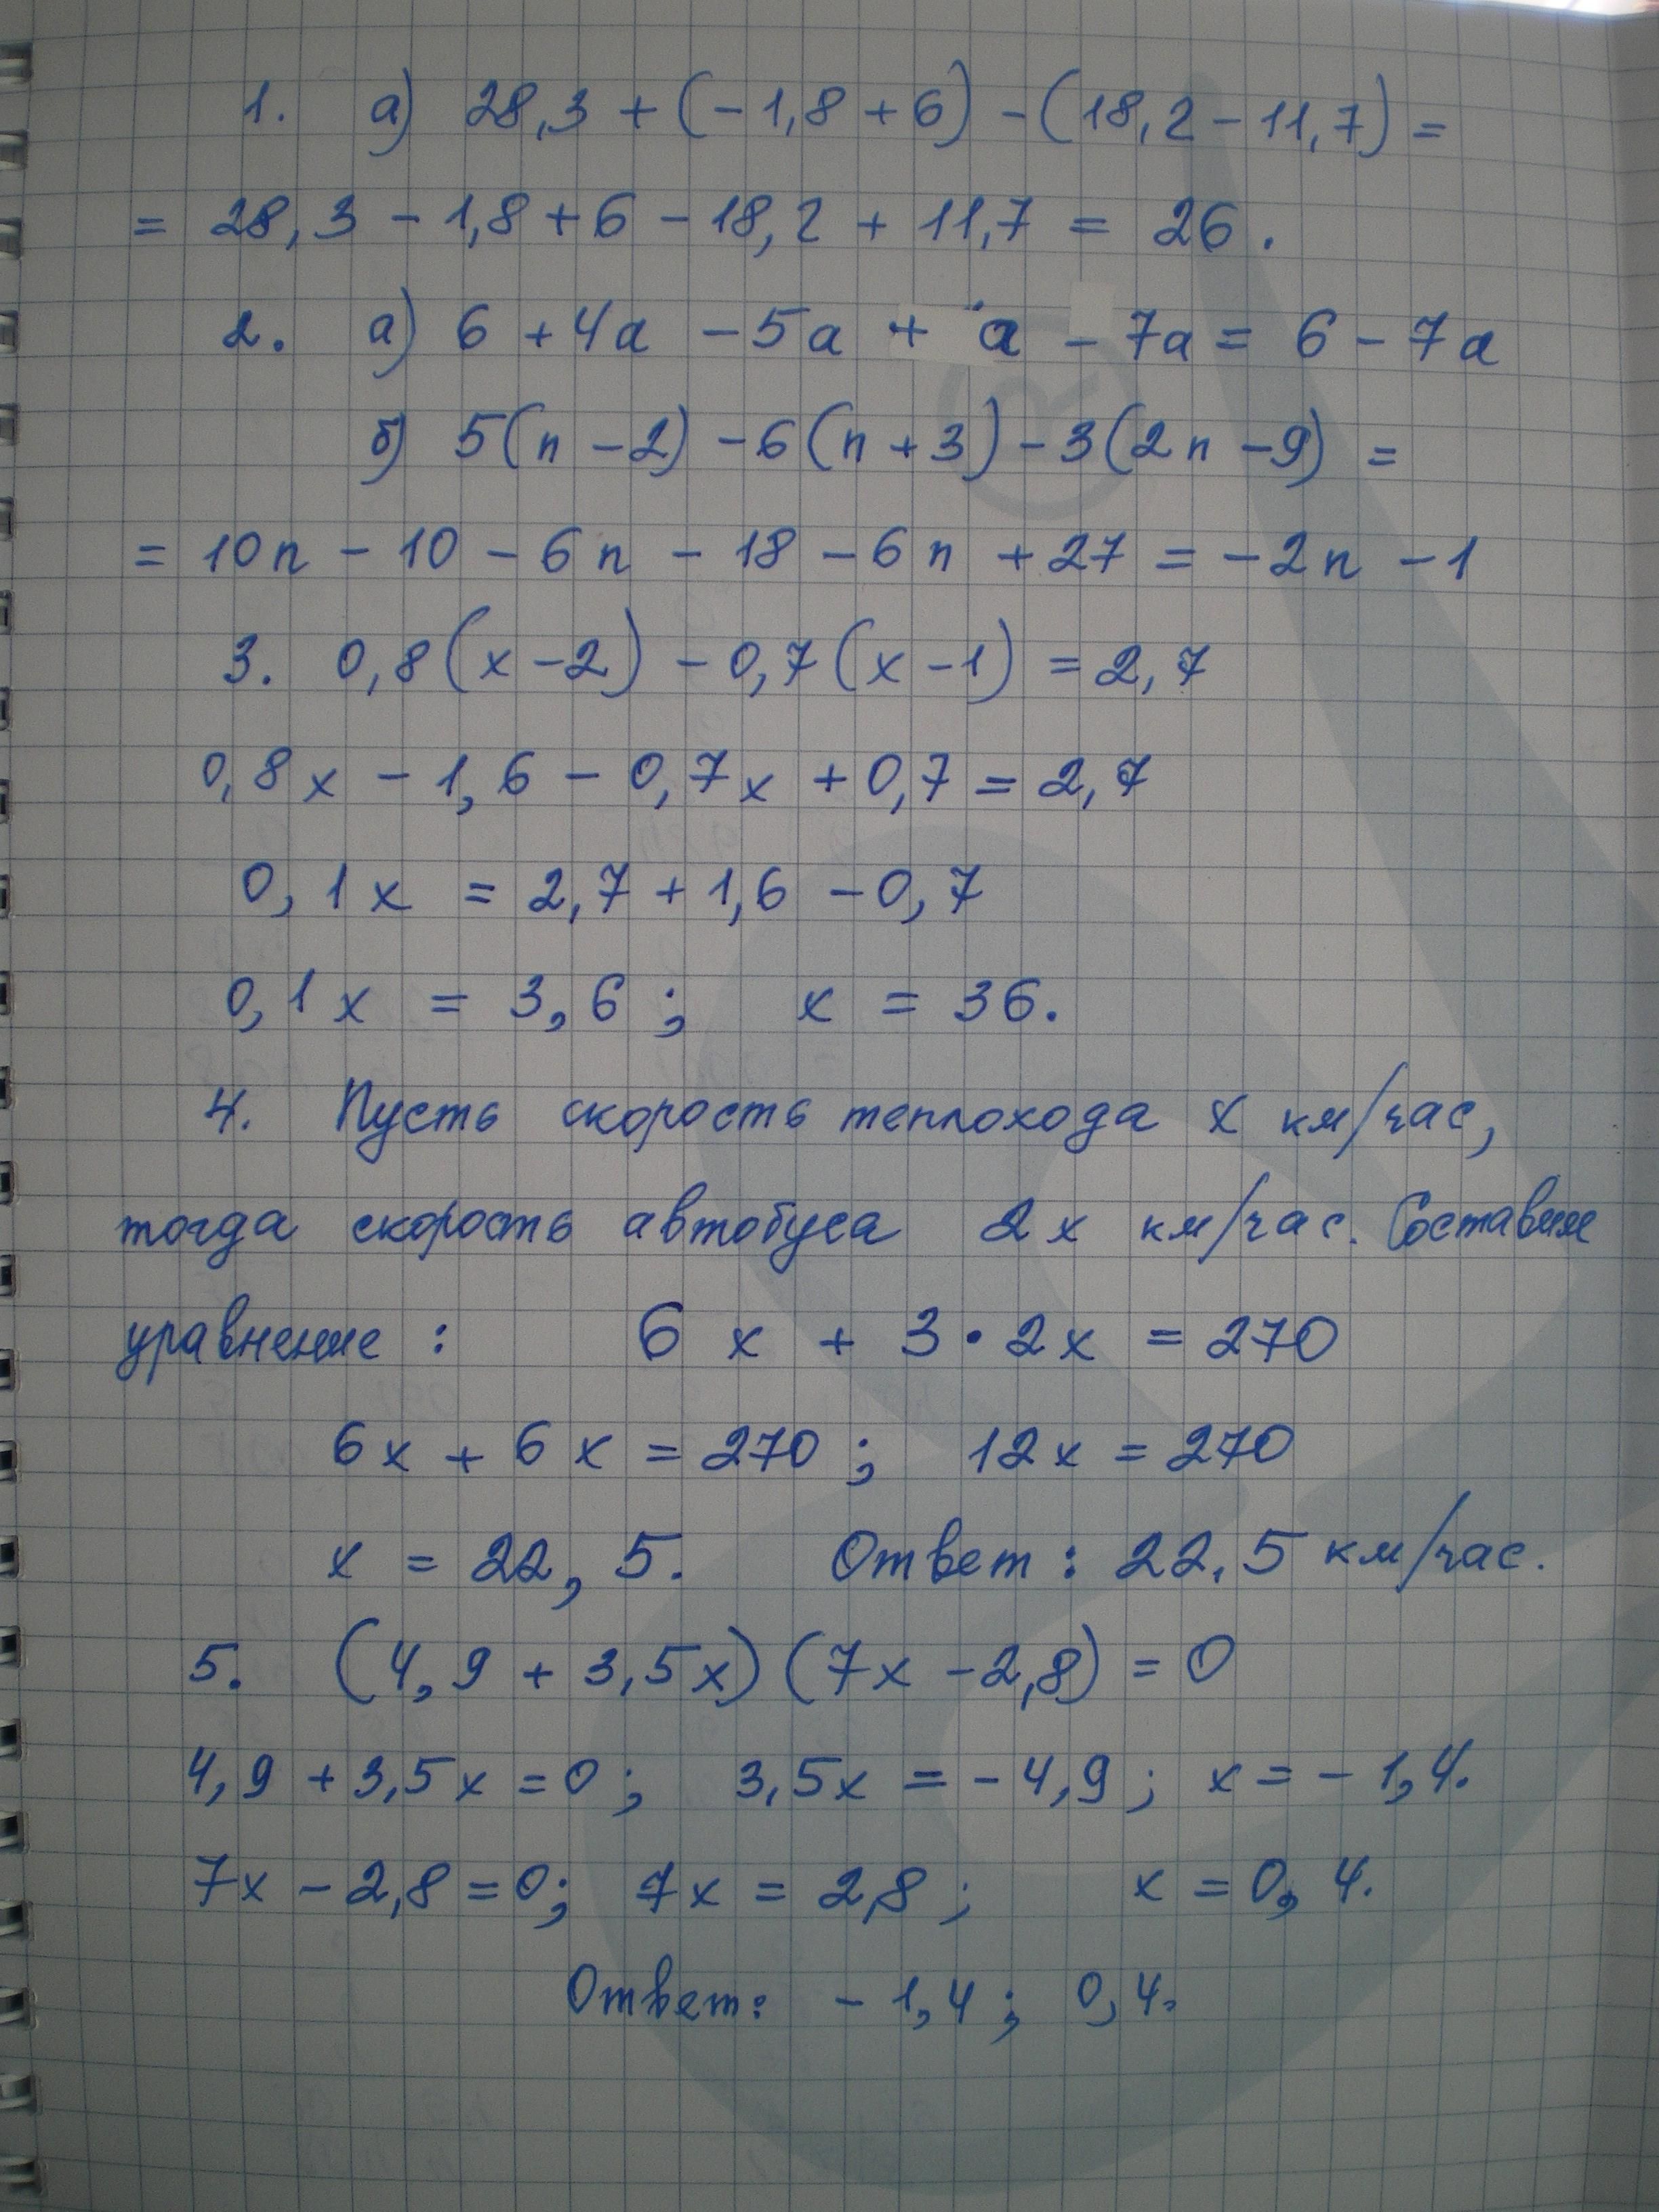 1. а) 28,3 + (-1,8 + 6) - (18,2 - 11,7) =
= 28,3 - 1,8 + 6 - 18,2 + 11,7 = 26.
2. а) 6 + 4а - 5а + а - 7а = 6 - 7а
б) 5(n - 2) - 6(n + 3) - 3(2n - 9) =
= 10n - 10 - 6n - 18 - 6n + 27 = -2n - 1
3. 0,8(x - 2) - 0,7(x - 1) = 2,7
0,8x - 1,6 - 0,7x + 0,7 = 2,7
0,1x = 2,7 + 1,6 - 0,7
0,1x = 3,6; x = 36.
4. Пусть скорость теплохода x км/час,
тогда скорость автобуса 2x км/час. Составим
уравнение: 6x + 3 • 2x = 270
6x + 6x = 270; 12x = 270
x = 22,5. Ответ: 22,5 км/час.
5. (4,9 + 3,5x)(7x - 2,8) = 0
4,9 + 3,5x = 0; 3,5x = -4,9; x = -1,4.
7x - 2,8 = 0; 7x = 2,8; x = 0,4.
Ответ: -1,4; 0,4.